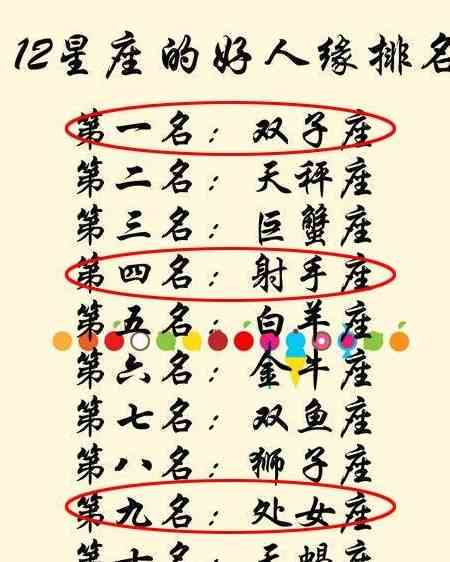 12星座的好人缘排名
第一名：双子座
第二名：天秤座
第三名：巨蟹座
第四名：射手座
第五名：白羊座
第六名：金牛座
第七名：双鱼座
第八名：狮子座
第九名：处女座
第十名：天蝎座